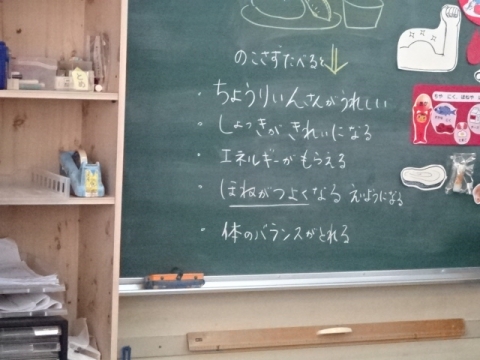 のこさずたべると
・ちょうりいんさんがうれしい
・しょっきがきれいになる
・エネルギーがもらえる
・ほねがつよくなる えいようになる
・体のバランスがとれる